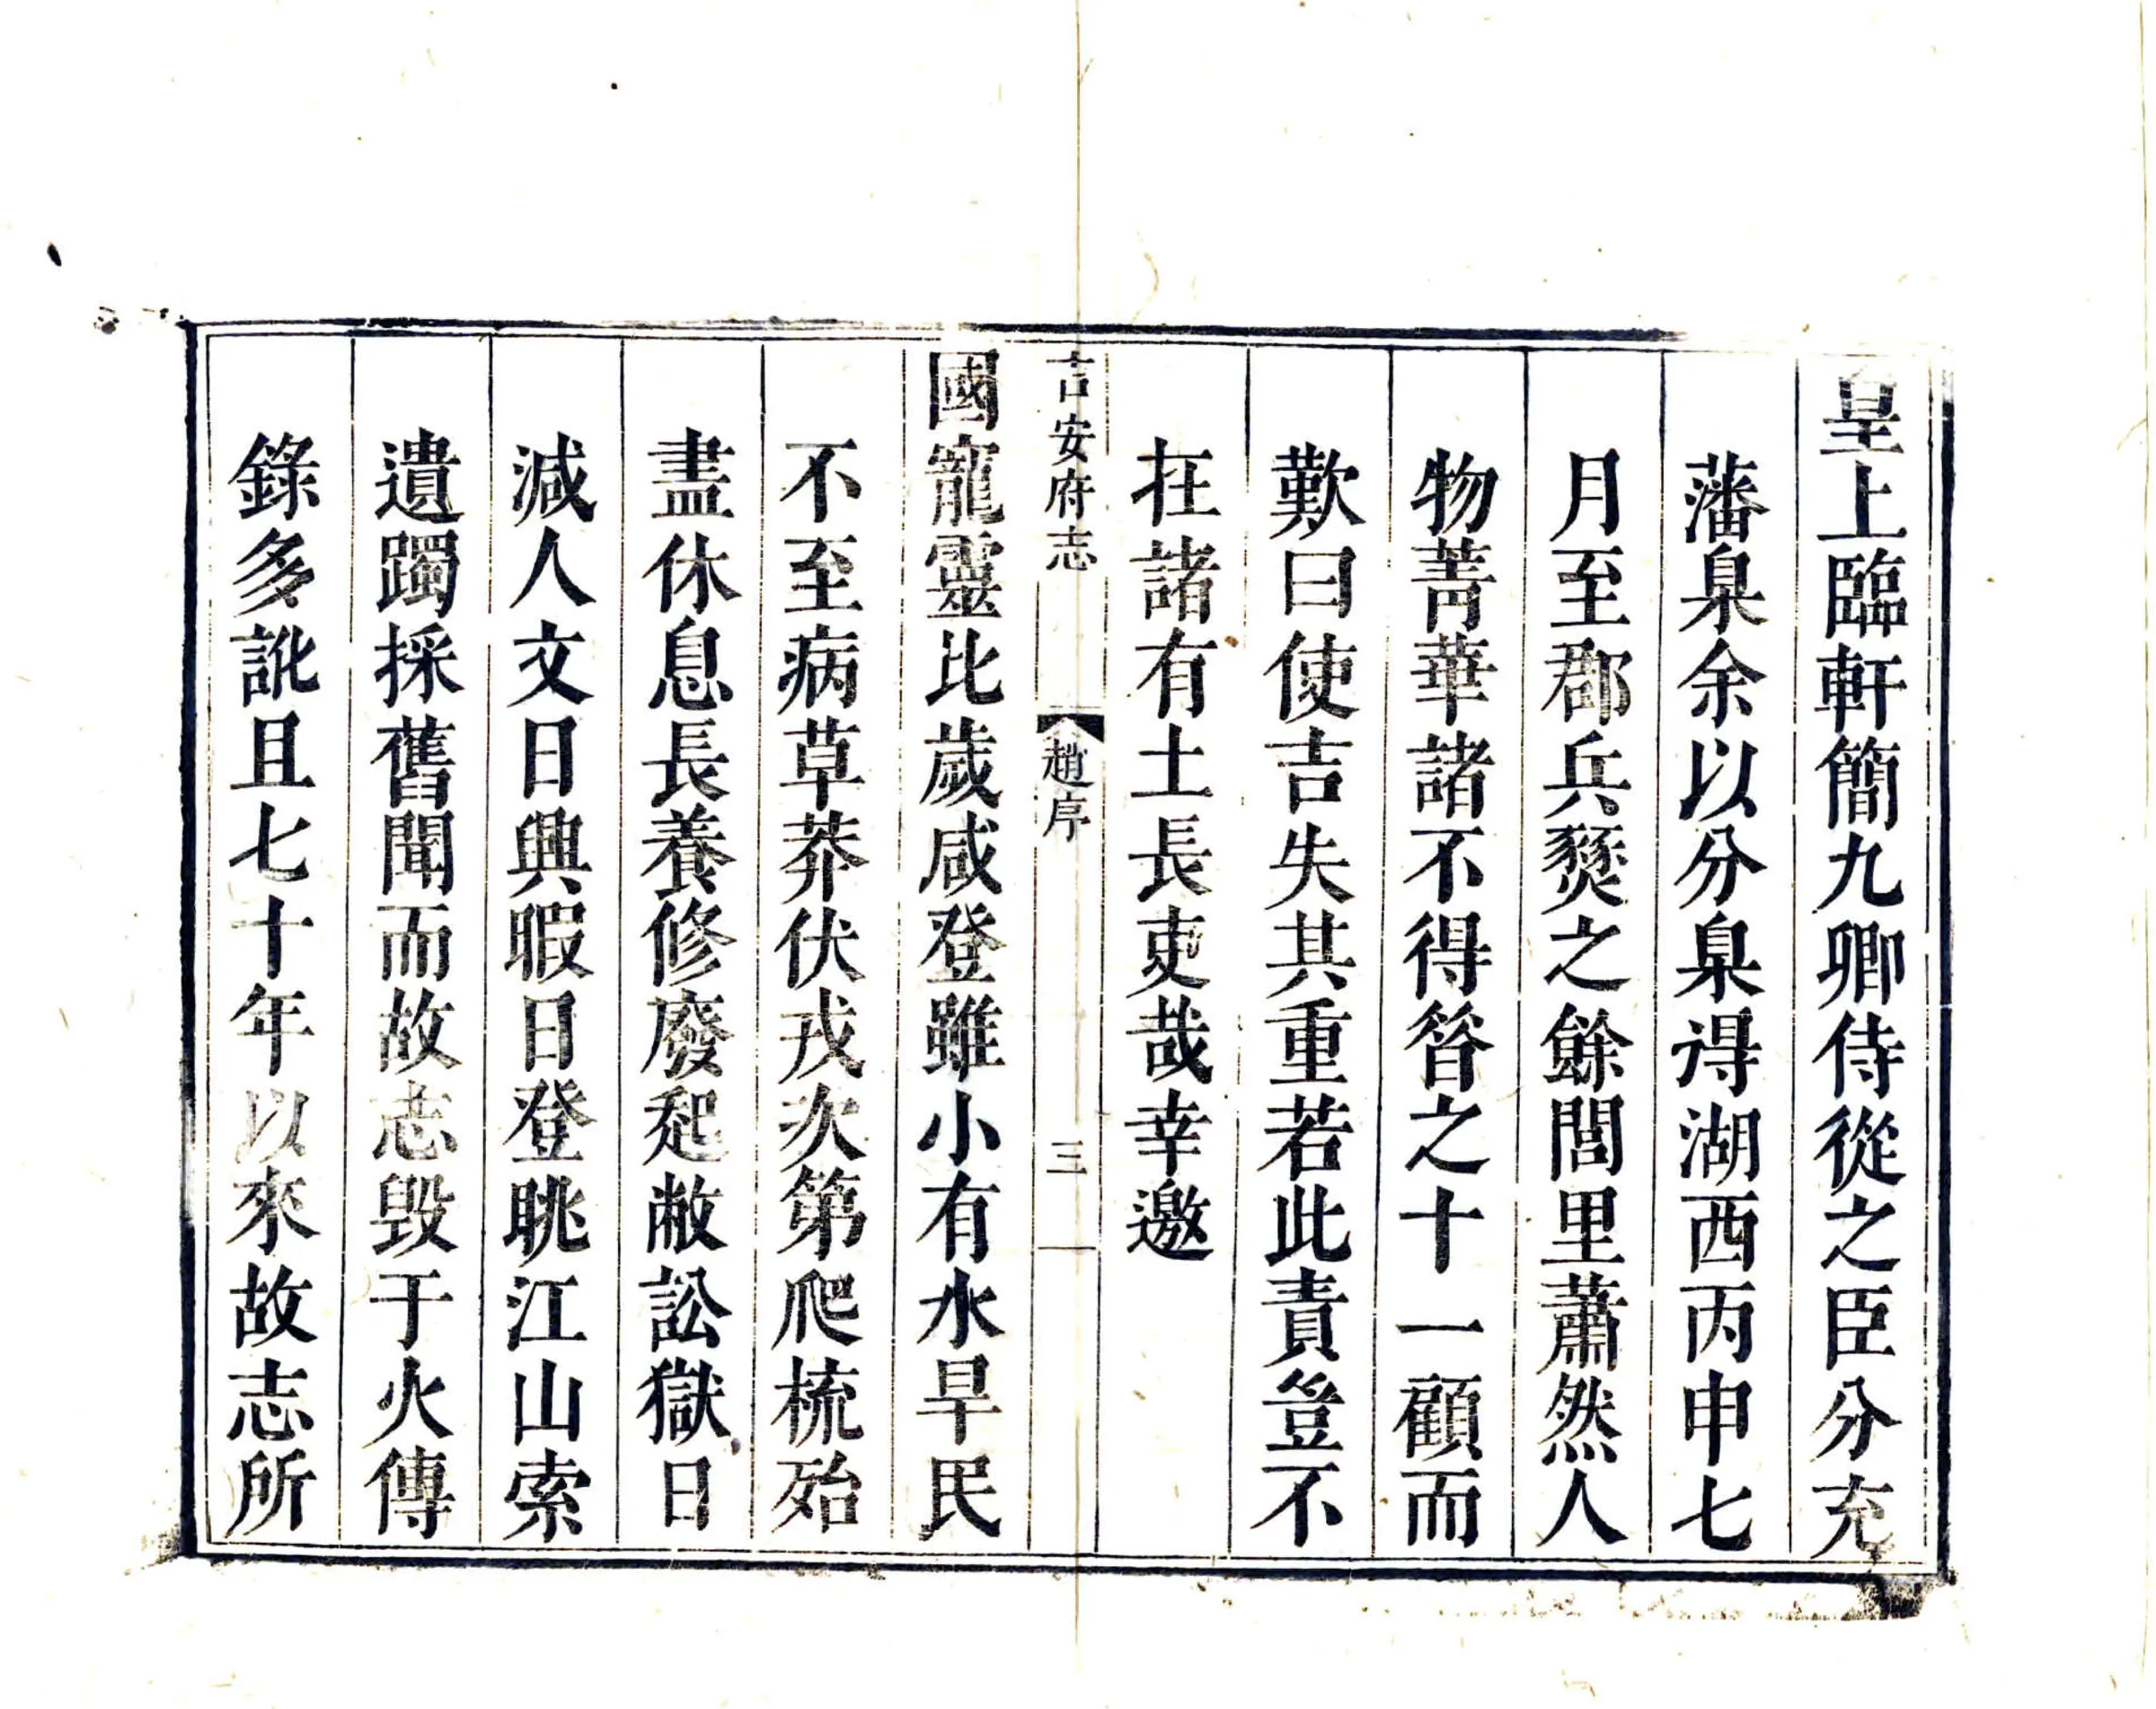 皇上臨軒簡九卿侍從之臣分充
藩臬余以分臬得湖西丙申七
月至郡兵燹之餘閭里蕭然人
物菁華諸不得昝之十一顧而
歎曰使吉失其重若此責豈不
在諸有土長吏哉幸邀
吉安府志
趙序
三
國寵靈比歲咸登雖小有水旱民
不至病草莽伏戎次第爬梳殆
盡休息長養修廢起敝訟獄日
減人文日興暇日登眺江山索
遺躅採舊聞而故志毀于火傳
錄多訛且七十年以來故志所